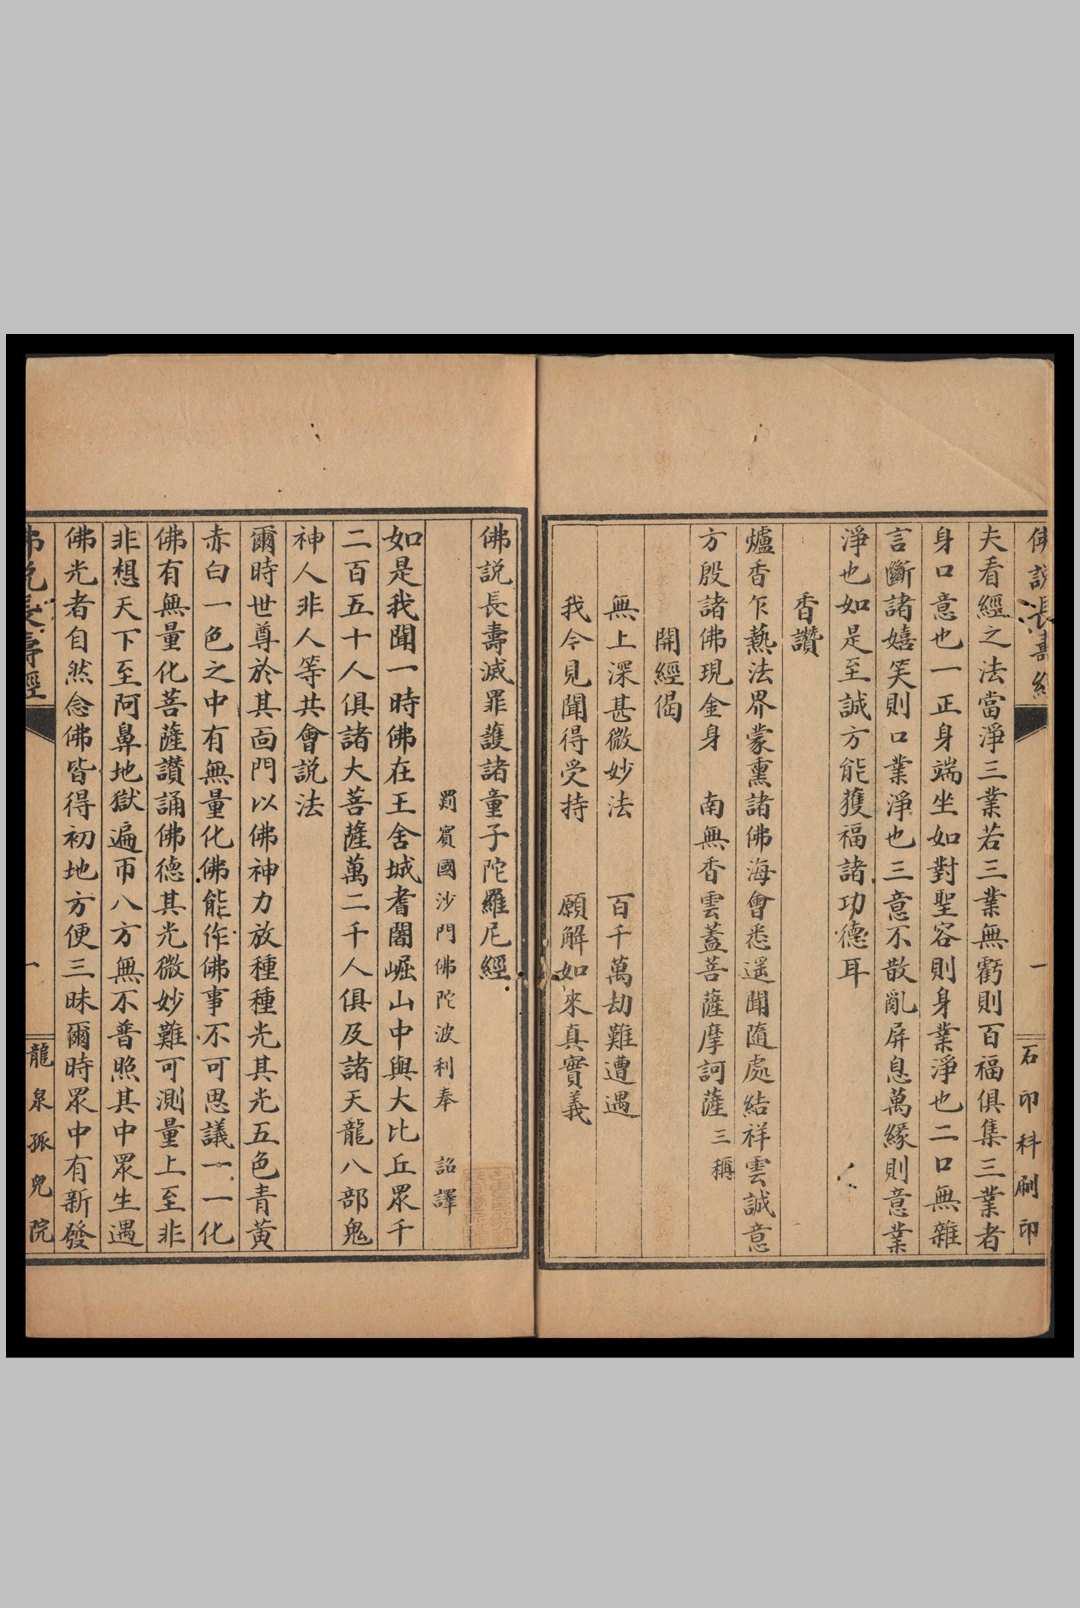 佛說長壽經
一
石印科刷印
夫看經之法當淨三業若三業無虧則百福俱集三業者
身口意也一正身端坐如對聖容則身業淨也二口無雜
言斷諸嬉笑則口業淨也三意不散亂屏息萬緣則意業
淨也如是至誠方能獲福諸功德耳
香讚
爐香乍爇法界蒙熏諸佛海會悉遥聞隨處結祥雲誠意
方殷諸佛現金身 南無香雲蓋菩薩摩訶薩三稱
開經偈
無上深甚微妙法 百千萬劫難遭遇
我今見聞得受持 願解如來真實義
佛說長壽滅罪護諸童子陀羅尼經
罽賓國沙門佛陀波利奉 詔譯
如是我聞一時佛在王舍城耆闍崛山中與大比丘眾千
二百五十人俱諸大菩薩萬二千人俱及諸天龍八部鬼
神人非人等共會說法
爾時世尊於其面門以佛神力放種種光其光五色青黃
赤白一色之中有無量化佛能作佛事不可思議一一化
佛有無量化菩薩讚誦佛德其光微妙難可測量上至非
非想天下至阿鼻地獄遍帀八方無不普照其中眾生遇
佛光者自然念佛皆得初地方便三昧爾時眾中有新發
佛說長壽經
一
龍泉孤兒院